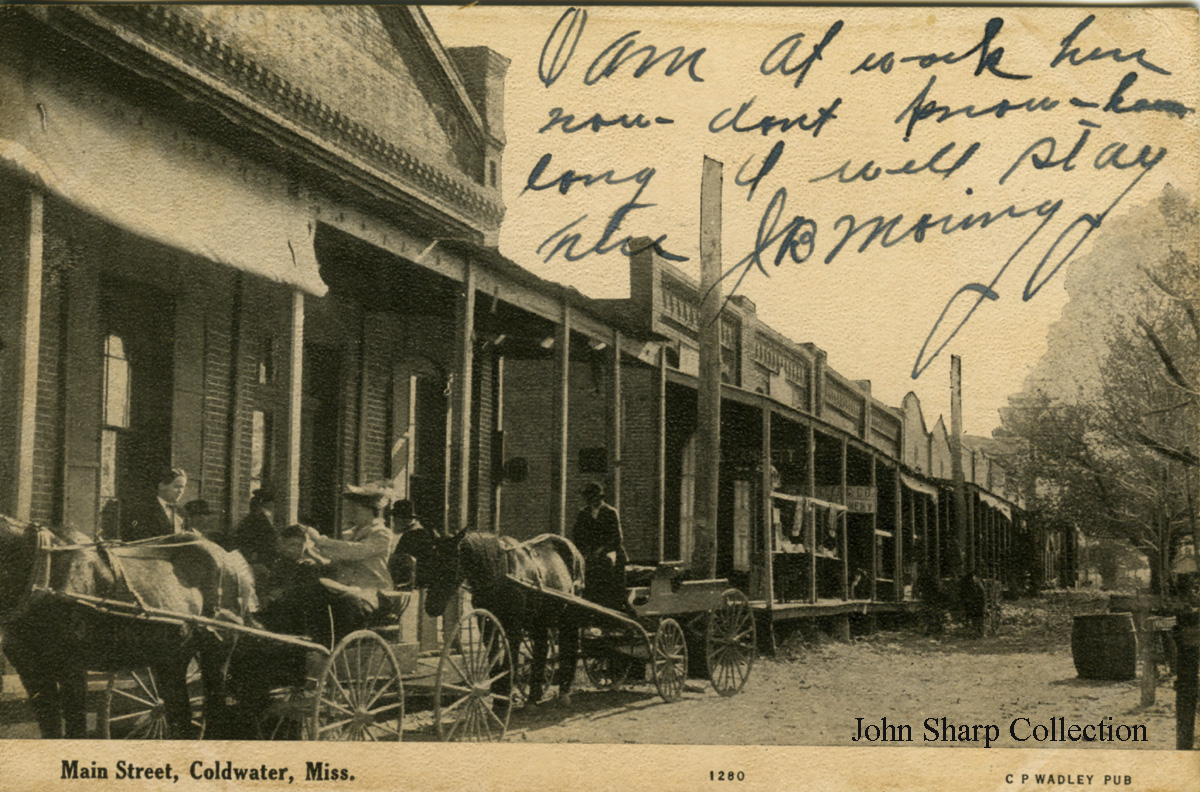 I am at work here
now - dont know - how
long I will stay
here JB Moring
John Sharp Collection
Main Street, Coldwater, Miss.
1280
C P WADLEY PUB